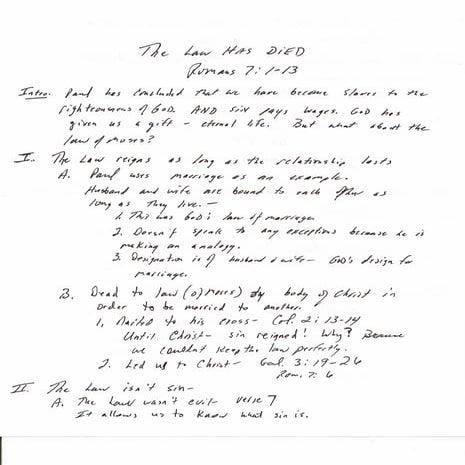 The Law HAS DIED
Romans 7:1-13
Intro. Paul has concluded that we have become slaves to the
righteousness of GOD. AND sin pays wages. GOD has
given us a gift - eternal life. But what about the
law of Moses?
I. The Law reigns as long as the relationship lasts
A. Paul uses marriage as an example.
Husband and wife are bound to each other as
long as they live. -
1. This was God's law of marriage
2. Doesn't speak to any exceptions because he is
making an analogy.
3. Designation is of husband & wife - God's design for
marriage.
B. Dead to law (of Moses) by body of Christ in
order to be married to another.
1. Nailed to his cross - Col. 2:13-14
Until Christ - sin reigned! Why? Because
we couldn't keep the law perfectly.
2. Led us to Christ - Gal. 3:19-26
Rom. 7:6
II. The Law isn't sin -
A. The Law wasn't evil - verse 7
It allows us to know what sin is.